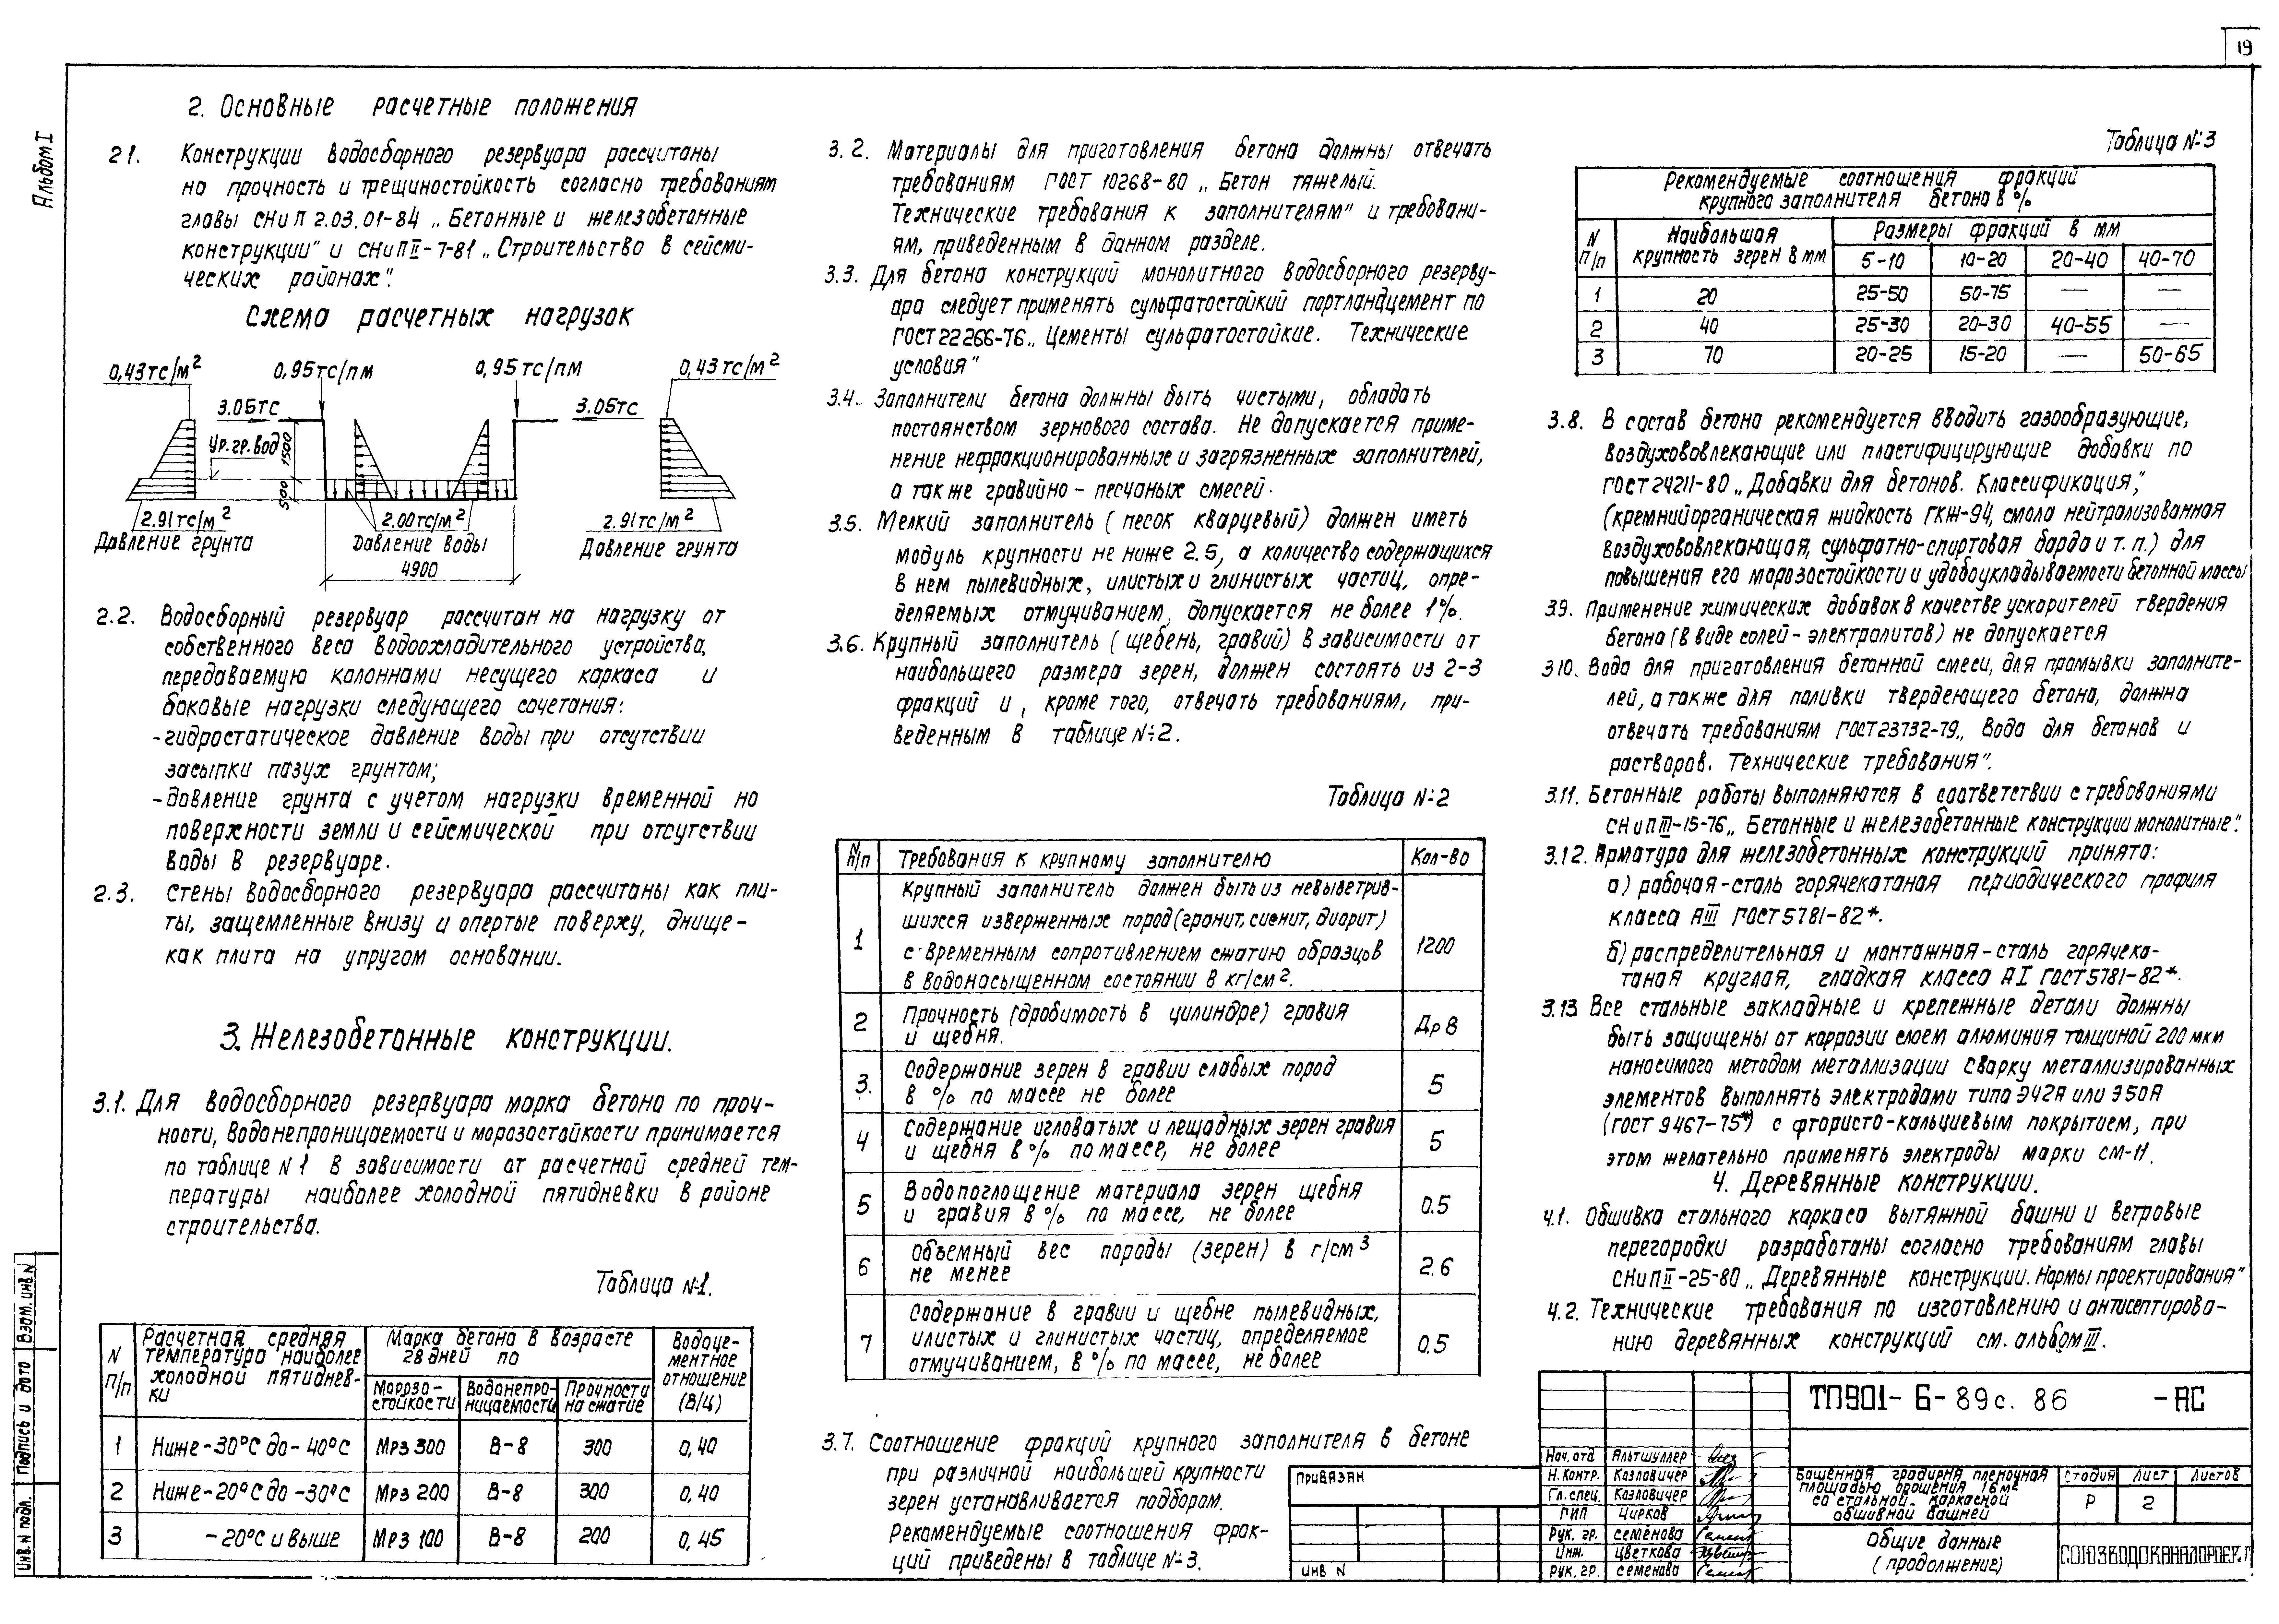 19
Альбом I
2. Основные расчетные положения
2.1. Конструкции водосборного резервуара рассчитаны
на прочность и трещиностойкость согласно требованиям
главы СНиП 2.03.01-84 „Бетонные и железобетонные
конструкции" и СНиП II-7-81 „Строительство в сейсми-
ческих районах".
Схема расчетных нагрузок
0,43 тс/м² 0,95 тс/пм 0,95 тс/пм 0,43 тс/м²
3.05тс 3.05тс
Ур. гр. вод
1500
500
2.91 тс/м² 2.00 тс/м² 2.91 тс/м²
Давление грунта Давление воды Давление грунта
4900
2.2. Водосборный резервуар рассчитан на нагрузку от
собственного веса водоохладительного устройства,
передаваемую колоннами несущего каркаса и
боковые нагрузки следующего сочетания:
- гидростатическое давление воды при отсутствии
засыпки пазух грунтом;
- давление грунта с учетом нагрузки временной на
поверхности земли и сейсмической при отсутствии
воды в резервуаре.
2.3. Стены водосборного резервуара рассчитаны как пли-
ты, защемленные внизу и опертые поверху, днище -
как плита на упругом основании.
3. Железобетонные конструкции.
3.1. Для водосборного резервуара марка бетона по проч-
ности, водонепроницаемости и морозостойкости принимается
по таблице N 1 в зависимости от расчетной средней тем-
пературы наиболее холодной пятидневки в районе
строительства.
Таблица №1.
N п/п Расчетная средняя температура наиболее холодной пятидневки Марка бетона в возрасте 28 дней по Водоце-ментное отношение (В/ц)
Морозо-стойкости Водонепро-ницаемости Прочности на сжатие
1 Ниже -30°С до -40°С Мрз 300 В-8 300 0,40
2 Ниже -20°С до -30°С Мрз 200 В-8 300 0,40
3 -20°С и выше Мрз 100 В-8 200 0,45
3.2. Материалы для приготовления бетона должны отвечать
требованиям ГОСТ 10268-80 „Бетон тяжелый.
Технические требования к заполнителям" и требовани-
ям, приведенным в данном разделе.
3.3. Для бетона конструкций монолитного водосборного резерву-
ара следует применять сульфатостойкий портландцемент по
ГОСТ 22266-76 „Цементы сульфатостойкие. Технические
условия"
3.4. Заполнители бетона должны быть чистыми, обладать
постоянством зернового состава. Не допускается приме-
нение нефракционированных и загрязненных заполнителей,
а также гравийно - песчаных смесей.
3.5. Мелкий заполнитель (песок кварцевый) должен иметь
модуль крупности не ниже 2.5, а количество содержащихся
в нем пылевидных, илистых и глинистых частиц, опре-
деляемых отмучиванием, допускается не более 1%.
3.6. Крупный заполнитель (щебень, гравий) в зависимости от
наибольшего размера зерен, должен состоять из 2-3
фракций и, кроме того, отвечать требованиям, при-
веденным в таблице №2.
Таблица №2
N п/п Требования к крупному заполнителю Кол-во
1 Крупный заполнитель должен быть из невыветрив-
шихся изверженных пород (гранит, сиенит, диорит)
с временным сопротивлением сжатию образцов 1200
в водонасыщенном состоянии в кг/см².
2 Прочность (дробимость в цилиндре) гравия Др 8
и щебня.
3. Содержание зерен в гравии слабых пород 5
в % по массе не более
4 Содержание игловатых и лещадных зерен гравия 5
и щебня в % по массе, не более
5 Водопоглощение материала зерен щебня 0.5
и гравия в % по массе, не более
6 Объемный вес породы (зерен) в г/см³ 2.6
не менее
7 Содержание в гравии и щебне пылевидных,
илистых и глинистых частиц, определяемое 0.5
отмучиванием, в % по массе, не более
3.7. Соотношение фракций крупного заполнителя в бетоне
при различной наибольшей крупности
зерен устанавливается подбором.
Рекомендуемые соотношения фрак-
ций приведены в таблице №3.
Таблица №3
Рекомендуемые соотношения фракций
крупного заполнителя бетона в %
N п/п Наибольшая крупность зерен в мм Размеры фракций в мм
5-10 10-20 20-40 40-70
1 20 25-50 50-75 — —
2 40 25-30 20-30 40-55 —
3 70 20-25 15-20 — 50-65
3.8. В состав бетона рекомендуется вводить газообразующие,
воздухововлекающие или пластифицирующие добавки по
ГОСТ 24211-80 „Добавки для бетонов. Классификация",
(кремнийорганическая жидкость ГКЖ-94, смола нейтрализованная
воздухововлекающая, сульфатно-спиртовая барда и т. п.) для
повышения его морозостойкости и удобоукладываемости бетонной массы
3.9. Применение химических добавок в качестве ускорителей твердения
бетона (в виде солей - электролитов) не допускается
3.10. Вода для приготовления бетонной смеси, для промывки заполните-
лей, а также для поливки твердеющего бетона, должна
отвечать требованиям ГОСТ 23732-79 „Вода для бетонов и
растворов. Технические требования".
3.11. Бетонные работы выполняются в соответствии с требованиями
СНиП III-15-76 „Бетонные и железобетонные конструкции монолитные".
3.12. Арматура для железобетонных конструкций принята:
а) рабочая - сталь горячекатаная периодического профиля
класса А III ГОСТ 5781-82*.
б) распределительная и монтажная - сталь горячека-
таная круглая, гладкая класса А I ГОСТ 5781-82*.
3.13 Все стальные закладные и крепежные детали должны
быть защищены от коррозии слоем алюминия толщиной 200 мкм
наносимого методом металлизации Сварку металлизированных
элементов выполнять электродами типа Э42А или Э50А
(ГОСТ 9467-75*) с фтористо-кальциевым покрытием, при
этом желательно применять электроды марки СМ-11.
4. Деревянные конструкции.
4.1. Обшивка стального каркаса вытяжной башни и ветровые
перегородки разработаны согласно требованиям главы
СНиП II-25-80 „Деревянные конструкции. Нормы проектирования"
4.2. Технические требования по изготовлению и антисептирова-
нию деревянных конструкций см. альбом III.
ТП901-6-89с.86 -АС
Нач. отд Альтшуллер
Н. контр. Козловичер
Гл. спец. Козловичер
ГИП Чирков
Рук. гр. Семёнова
Инж. Цветкова
Рук. гр. Семёнова
Башенная градирня пленочная
площадью орошения 16м²
со стальной каркасной
обшивной башней
Стадия Лист Листов
Р 2
Общие данные
(продолжение)
СОЮЗВОДОКАНАЛПРОЕКТ
Привязан
Инв N
Инв. N подл. Подпись и дата Взам. инв N